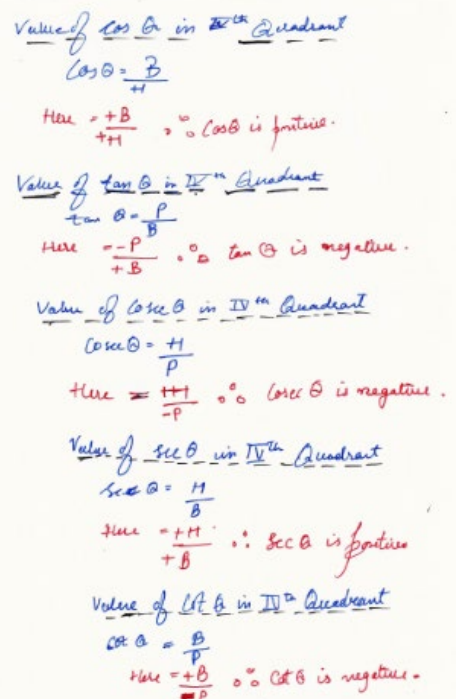 Value of cos θ in IVth Quadrant
Cosθ = B/H
Here = +B/+H ∴ Cosθ is positive.
Value of tan θ in IVth Quadrant
tan θ = P/B
Here = -P/+B ∴ tan θ is negative.
Value of Cosec θ in IVth Quadrant
Cosec θ = H/P
Here = +H/-P ∴ Cosec θ is negative.
Value of sec θ in IVth Quadrant
sec θ = H/B
Here = +H/+B ∴ Sec θ is positive
Value of Cot θ in IVth Quadrant
cot θ = B/P
Here = +B/-P ∴ Cot θ is negative.